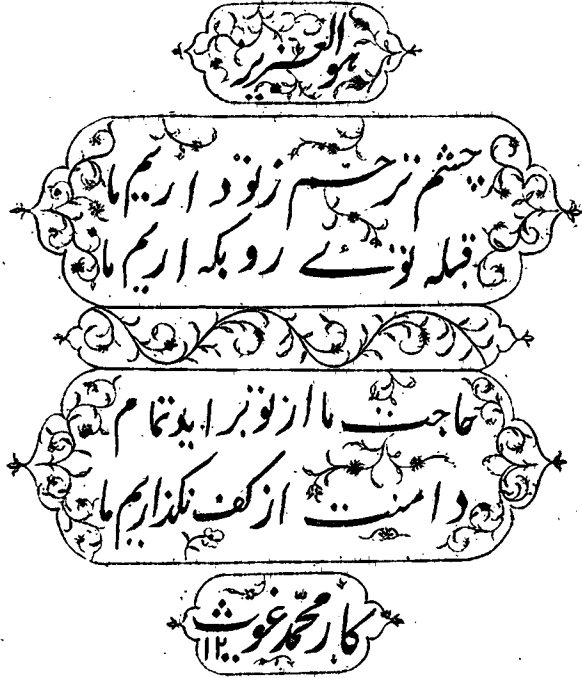 هو العزیز
چشم ترحم ز تو داریم ما
قبله توئے رو بکه اریم ما
حاجت ما از تو براید تمام
دامنت از کف نگذاریم ما
کار محمد غوث
۱۲۰